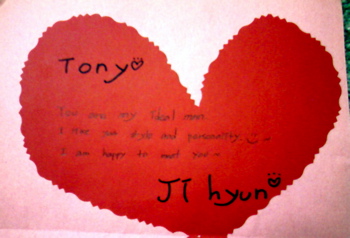 Tony
You are my Ideal man
I like your style and personality
I am happy to meet you~
JI hyun